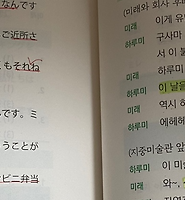 なんです
ご近所さ
もそれね
です。ミ
うことが
ビニ弁当
(미래와 회사 후
미래 이게 유
하루미 구사마
미래 서 이
하루미
이 날을
미래 역시
하루미 에헤헤
(지중미술관 앞
미래 이 미
하루미 와~,